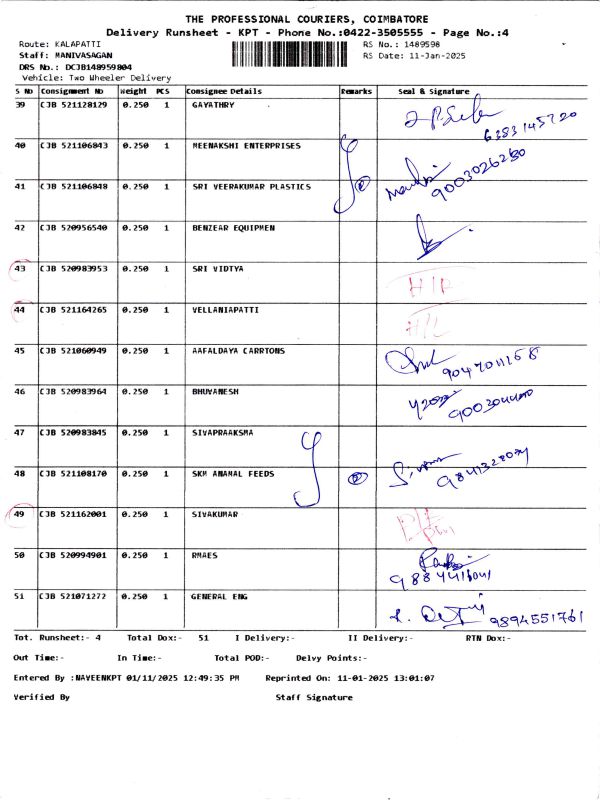 THE PROFESSIONAL COURIERS, COIMBATORE
Delivery Runsheet - KPT - Phone No.:0422-3505555 - Page No.:4
Route: KALAPATTI RS No.: 1489598
Staff: MANIVASAGAN RS Date: 11-Jan-2025
DRS No.: DCJB148959804
Vehicle: Two Wheeler Delivery
S No Consignment No Weight PCS Consignee Details Remarks Seal & signature
39 CJB 521128129 0.250 1 GAYATHRY
6383145720
40 CJB 521106843 0.250 1 MEENAKSHI ENTERPRISES
9003026260
41 CJB 521106848 0.250 1 SRI VEERAKUMAR PLASTICS
42 CJB 520956540 0.250 1 BENZEAR EQUIPMEN
43 CJB 520983953 0.250 1 SRI VIDTYA
44 CJB 521164265 0.250 1 VELLANIAPATTI
45 CJB 521060949 0.250 1 AAFALDAYA CARRTONS
9047011158
46 CJB 520983964 0.250 1 BHUVANESH
47 CJB 520983845 0.250 1 SIVAPRAAKSMA
48 CJB 521108170 0.250 1 SKM ANAMAL FEEDS
49 CJB 521162001 0.250 1 SIVAKUMAR
50 CJB 520994901 0.250 1 RMAES
9884416041
51 CJB 521071272 0.250 1 GENERAL ENG
9894551761
Tot. Runsheet:- 4 Total Dox:- 51 I Delivery:- II Delivery:- RTN Dox:-
Out Time:- In Time:- Total POD:- Delvy Points:-
Entered By :NAVEENKPT 01/11/2025 12:49:35 PM Reprinted On: 11-01-2025 13:01:07
Verified By Staff Signature